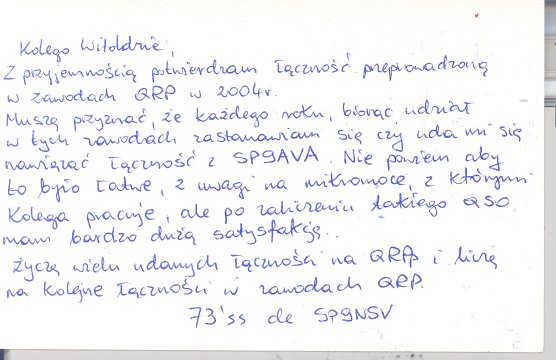 Kolego Witoldzie,
Z przyjemnością potwierdzam łączność przeprowadzoną
w zawodach QRP w 2004r.
Muszę przyznać, że każdego roku, biorąc udział
w tych zawodach zastanawiam się czy uda mi się
nawiązać łączność z SP9AVA. Nie powiem aby
to było łatwe, z uwagi na mikromoce, z którymi
Kolega pracuje, ale po zaliczeniu takiego QSO
mam bardzo dużą satysfakcję..
Życzę wielu udanych łączności na QRPp i liczę
na kolejne łączności w zawodach QRP.
73'ss de SP9NSV